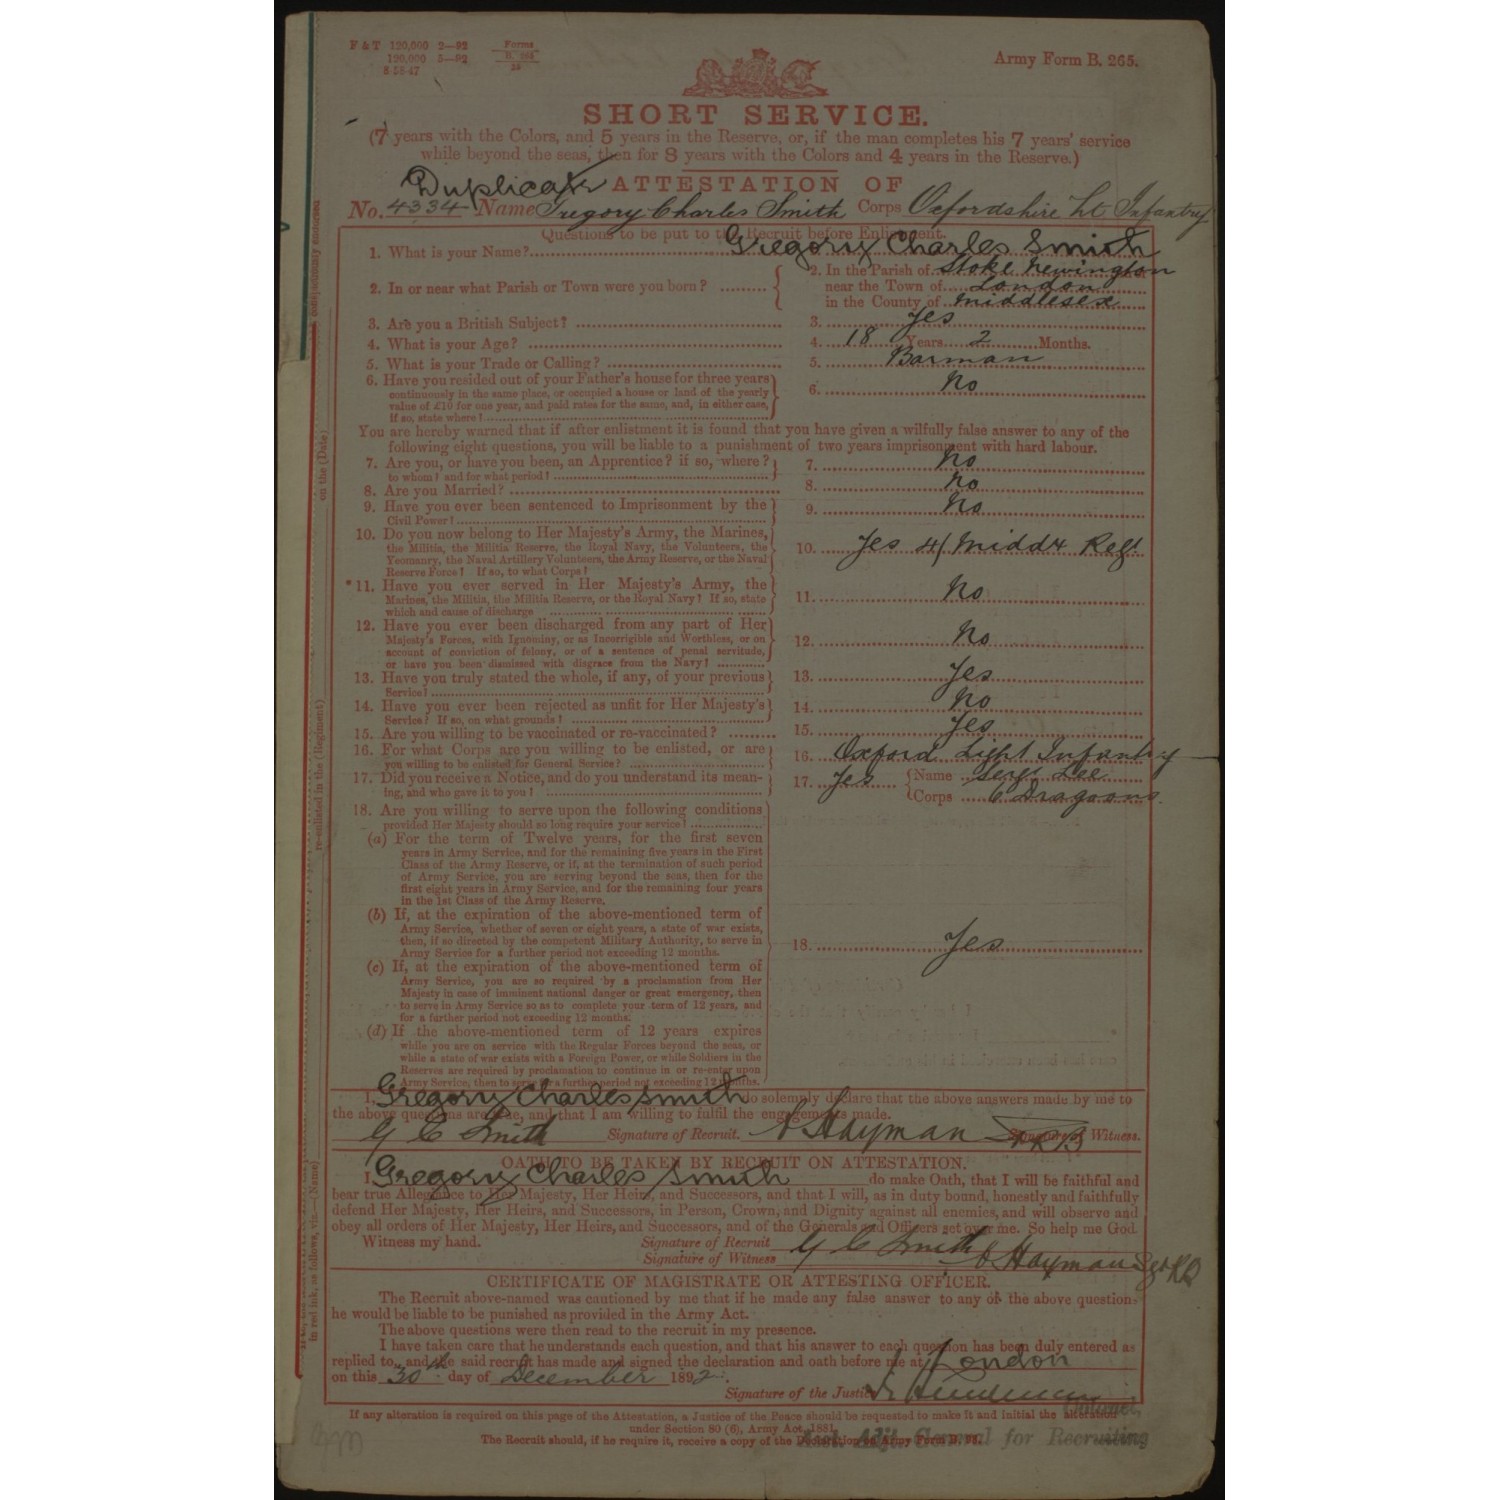 F. & T. 120,000 2—92
120,000 5—92
8-58-47
Forms
B. 265
Army Form B. 265.
SHORT SERVICE.
(7 years with the Colors, and 5 years in the Reserve, or, if the man completes his 7 years' service
while beyond the seas, then for 8 years with the Colors and 4 years in the Reserve.)
Duplicate ATTESTATION OF
No. 4334 Name Gregory Charles Smith Corps Oxfordshire Lt Infantry
Questions to be put to the Recruit before Enlistment.
1. What is your Name? Gregory Charles Smith
2. In or near what Parish or Town were you born?
2. In the Parish of Stoke Newington
near the Town of London
in the County of Middlesex
3. Are you a British Subject? 3. Yes
4. What is your Age? 4. 18 Years 2 Months.
5. What is your Trade or Calling? 5. Barman
6. Have you resided out of your Father's house for three years
continuously in the same place, or occupied a house or land of the yearly
value of £10 for one year, and paid rates for the same, and, in either case,
if so, state where? 6. No
You are hereby warned that if after enlistment it is found that you have given a wilfully false answer to any of the
following eight questions, you will be liable to a punishment of two years imprisonment with hard labour.
7. Are you, or have you been, an Apprentice? if so, where? 7. No
to whom? and for what period?
8. Are you Married? 8. No
9. Have you ever been sentenced to Imprisonment by the
Civil Power? 9. No
10. Do you now belong to Her Majesty's Army, the Marines,
the Militia, the Militia Reserve, the Royal Navy, the Volunteers, the
Yeomanry, the Naval Artillery Volunteers, the Army Reserve, or the Naval
Reserve Force? If so, to what Corps? 10. Yes 4/ Middx Regt
*11. Have you ever served in Her Majesty's Army, the
Marines, the Militia, the Militia Reserve, or the Royal Navy? If so, state
which and cause of discharge 11. No
12. Have you ever been discharged from any part of Her
Majesty's Forces, with Ignominy, or as Incorrigible and Worthless, or on
account of conviction of felony, or of a sentence of penal servitude,
or have you been dismissed with disgrace from the Navy? 12. No
13. Have you truly stated the whole, if any, of your previous
Service? 13. Yes
14. Have you ever been rejected as unfit for Her Majesty's
Service? If so, on what grounds? 14. No
15. Are you willing to be vaccinated or re-vaccinated? 15. Yes
16. For what Corps are you willing to be enlisted, or are
you willing to be enlisted for General Service? 16. Oxford Light Infantry
17. Did you receive a Notice, and do you understand its mean-
ing, and who gave it to you? 17. Yes Name Sergt Lee
Corps 6 Dragoons
18. Are you willing to serve upon the following conditions
provided Her Majesty should so long require your service?
(a) For the term of Twelve years, for the first seven
years in Army Service, and for the remaining five years in the First
Class of the Army Reserve, or if, at the termination of such period
of Army Service, you are serving beyond the seas, then for the
first eight years in Army Service, and for the remaining four years
in the 1st Class of the Army Reserve.
(b) If, at the expiration of the above-mentioned term of
Army Service, whether of seven or eight years, a state of war exists,
then, if so directed by the competent Military Authority, to serve in
Army Service for a further period not exceeding 12 months.
18. Yes
(c) If, at the expiration of the above-mentioned term of
Army Service, you are so required by a proclamation from Her
Majesty in case of imminent national danger or great emergency, then
to serve in Army Service so as to complete your term of 12 years, and
for a further period not exceeding 12 months.
(d) If the above-mentioned term of 12 years expires
while you are on service with the Regular Forces beyond the seas, or
while a state of war exists with a Foreign Power, or while Soldiers in the
Reserves are required by proclamation to continue in or re-enter upon
Army Service, then to serve for a further period not exceeding 12 months.
I, Gregory Charles Smith do solemnly declare that the above answers made by me to
the above questions are true, and that I am willing to fulfil the engagements made.
G C Smith Signature of Recruit. Hayman Signature of Witness.
OATH TO BE TAKEN BY RECRUIT ON ATTESTATION.
I, Gregory Charles Smith do make Oath, that I will be faithful and
bear true Allegiance to Her Majesty, Her Heirs, and Successors, and that I will, as in duty bound, honestly and faithfully
defend Her Majesty, Her Heirs, and Successors, in Person, Crown, and Dignity against all enemies, and will observe and
obey all orders of Her Majesty, Her Heirs, and Successors, and of the Generals and Officers set over me. So help me God.
Witness my hand. Signature of Recruit G C Smith
Signature of Witness Hayman
CERTIFICATE OF MAGISTRATE OR ATTESTING OFFICER.
The Recruit above-named was cautioned by me that if he made any false answer to any of the above questions
he would be liable to be punished as provided in the Army Act.
The above questions were then read to the recruit in my presence.
I have taken care that he understands each question, and that his answer to each question has been duly entered as
replied to, and the said recruit has made and signed the declaration and oath before me at London
on this 30th day of December 1892.
Signature of the Justice
Colonel,
If any alteration is required on this page of the Attestation, a Justice of the Peace should be requested to make it and initial the alteration
under Section 80 (6), Army Act, 1881.
The Recruit should, if he require it, receive a copy of the Declaration on Army Form B.
Asst. Adjt. General for Recruiting
on the (Date)
re-enlisted in the (Regiment)
in red ink, as follows, viz.—(Name)